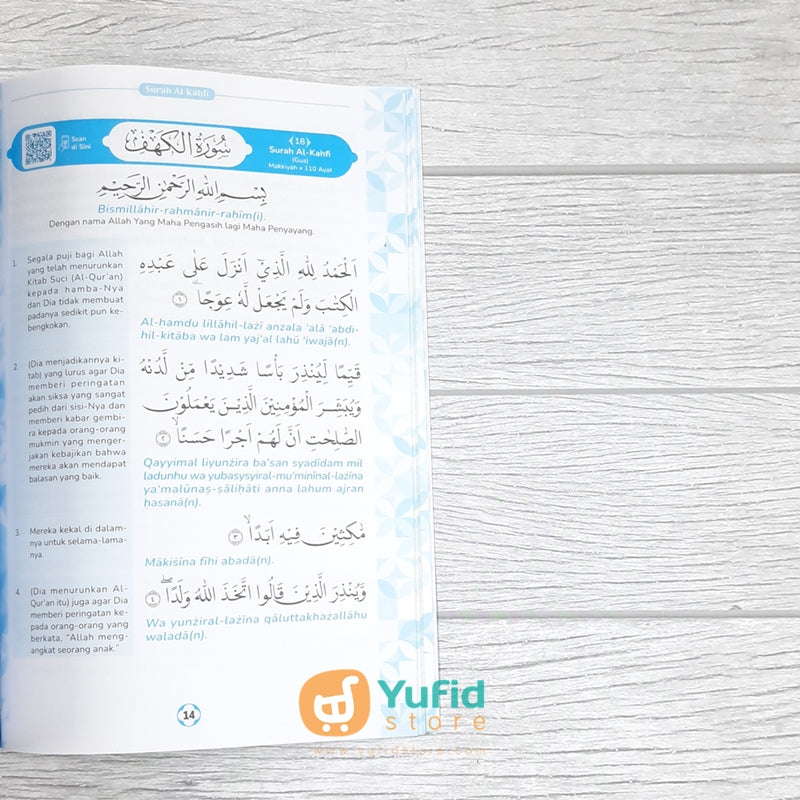 Surah Al-Kahfi
Scan
di Sini
سُوْرَةُ الْكَهْفِ
18
Surah Al-Kahfi
(Gua)
Makkiyah • 110 Ayat
بِسْمِ اللّٰهِ الرَّحْمٰنِ الرَّحِيْمِ
Bismillāhir-raḥmānir-raḥīm(i).
Dengan nama Allah Yang Maha Pengasih lagi Maha Penyayang.
1. Segala puji bagi Allah
yang telah menurunkan
Kitab Suci (Al-Qur'an)
kepada hamba-Nya
dan Dia tidak membuat
padanya sedikit pun ke-
bengkokan.
اَلْحَمْدُ لِلّٰهِ الَّذِيْٓ اَنْزَلَ عَلٰى عَبْدِهِ
الْكِتٰبَ وَلَمْ يَجْعَلْ لَّهٗ عِوَجًا ۜ ١
Al-ḥamdu lillāhil-lażī anzala ‘alā ‘abdi-
hil-kitāba wa lam yaj‘al lahū ‘iwajā(n).
2. (Dia menjadikannya ki-
tab) yang lurus agar Dia
memberi peringatan
akan siksa yang sangat
pedih dari sisi-Nya dan
memberi kabar gembi-
ra kepada orang-orang
mukmin yang menger-
jakan kebajikan bahwa
mereka akan mendapat
balasan yang baik.
قَيِّمًا لِّيُنْذِرَ بَأْسًا شَدِيْدًا مِّنْ لَّدُنْهُ
وَيُبَشِّرَ الْمُؤْمِنِيْنَ الَّذِيْنَ يَعْمَلُوْنَ
الصّٰلِحٰتِ اَنَّ لَهُمْ اَجْرًا حَسَنًاۙ ٢
Qayyimal liyunżira ba'san syadīdam mil
ladunhu wa yubasysyiral-mu'minīnal-lażīna
ya‘malūnaṣ-ṣāliḥāti anna lahum ajran
ḥasanā(n).
3. Mereka kekal di dalam-
nya untuk selama-lama-
nya.
مّٰكِثِيْنَ فِيْهِ اَبَدًاۙ ٣
Mākiṡīna fīhi abadā(n).
4. (Dia menurunkan Al-
Qur'an itu) juga agar Dia
memberi peringatan ke-
pada orang-orang yang
berkata, "Allah meng-
angkat seorang anak."
وَّيُنْذِرَ الَّذِيْنَ قَالُوا اتَّخَذَ اللّٰهُ وَلَدًاۖ ٤
Wa yunżiral-lażīna qāluttakhażallāhu
waladā(n).
14
Yufid
store
www.yufidstore.com